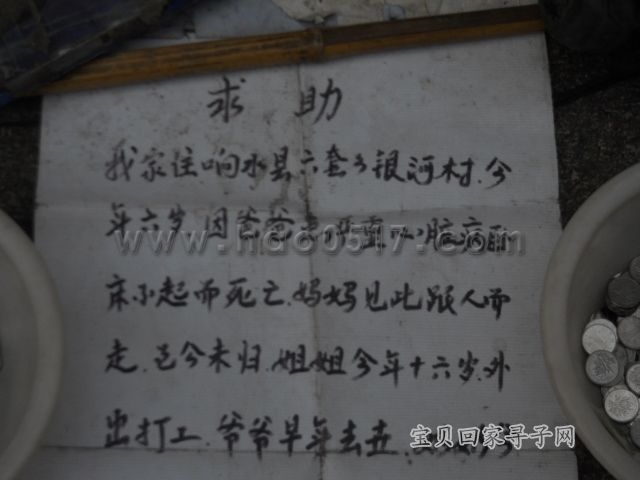 求 助
我家住响水县六套乡银河村.今
年六岁.因爸爸患严重心脏病卧
床不起而死亡.妈妈见此跟人而
走.迄今未归.姐姐今年十六岁.外
出打工.爷爷早年去世.
www.hao0517.com
宝贝回家寻子网